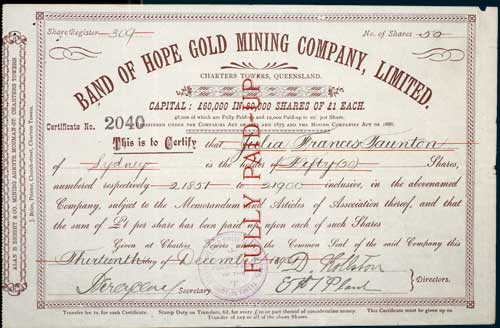 Share Register 309 No. of Shares 50
BAND OF HOPE GOLD MINING COMPANY, LIMITED.
CHARTERS TOWERS, QUEENSLAND.
CAPITAL: £60,000 IN 60,000 SHARES OF £1 EACH.
48,000 of which are Fully Paid-up and 12,000 Paid-up to per Share.
REGISTERED UNDER THE COMPANIES ACT OF 1863 AND THE MINING COMPANIES ACT OF 1886.
Certificate No. 2040
This is to Certify that Julia Frances Taunton
of Sydney is the holder of Fifty (50) Shares,
numbered respectively 21851 to 21900 inclusive, in the abovenamed
Company, subject to the Memorandum and Articles of Association thereof, and that
the sum of £1 per share has been paid up upon each of such Shares
Given at Charters Towers under the Common Seal of the said Company this
Thirteenth day of December
Secretary. Directors.
E H T Plant
Transfer fee for each Certificate. Stamp Duty on Transfers, 6d. for every £ or part thereof of consideration money. This Certificate must be given up on
Transfer of any or all of the above Shares.
FULLY PAID UP
MINING AGENTS, CHARTERS TOWERS.
Printer, Charters Towers.